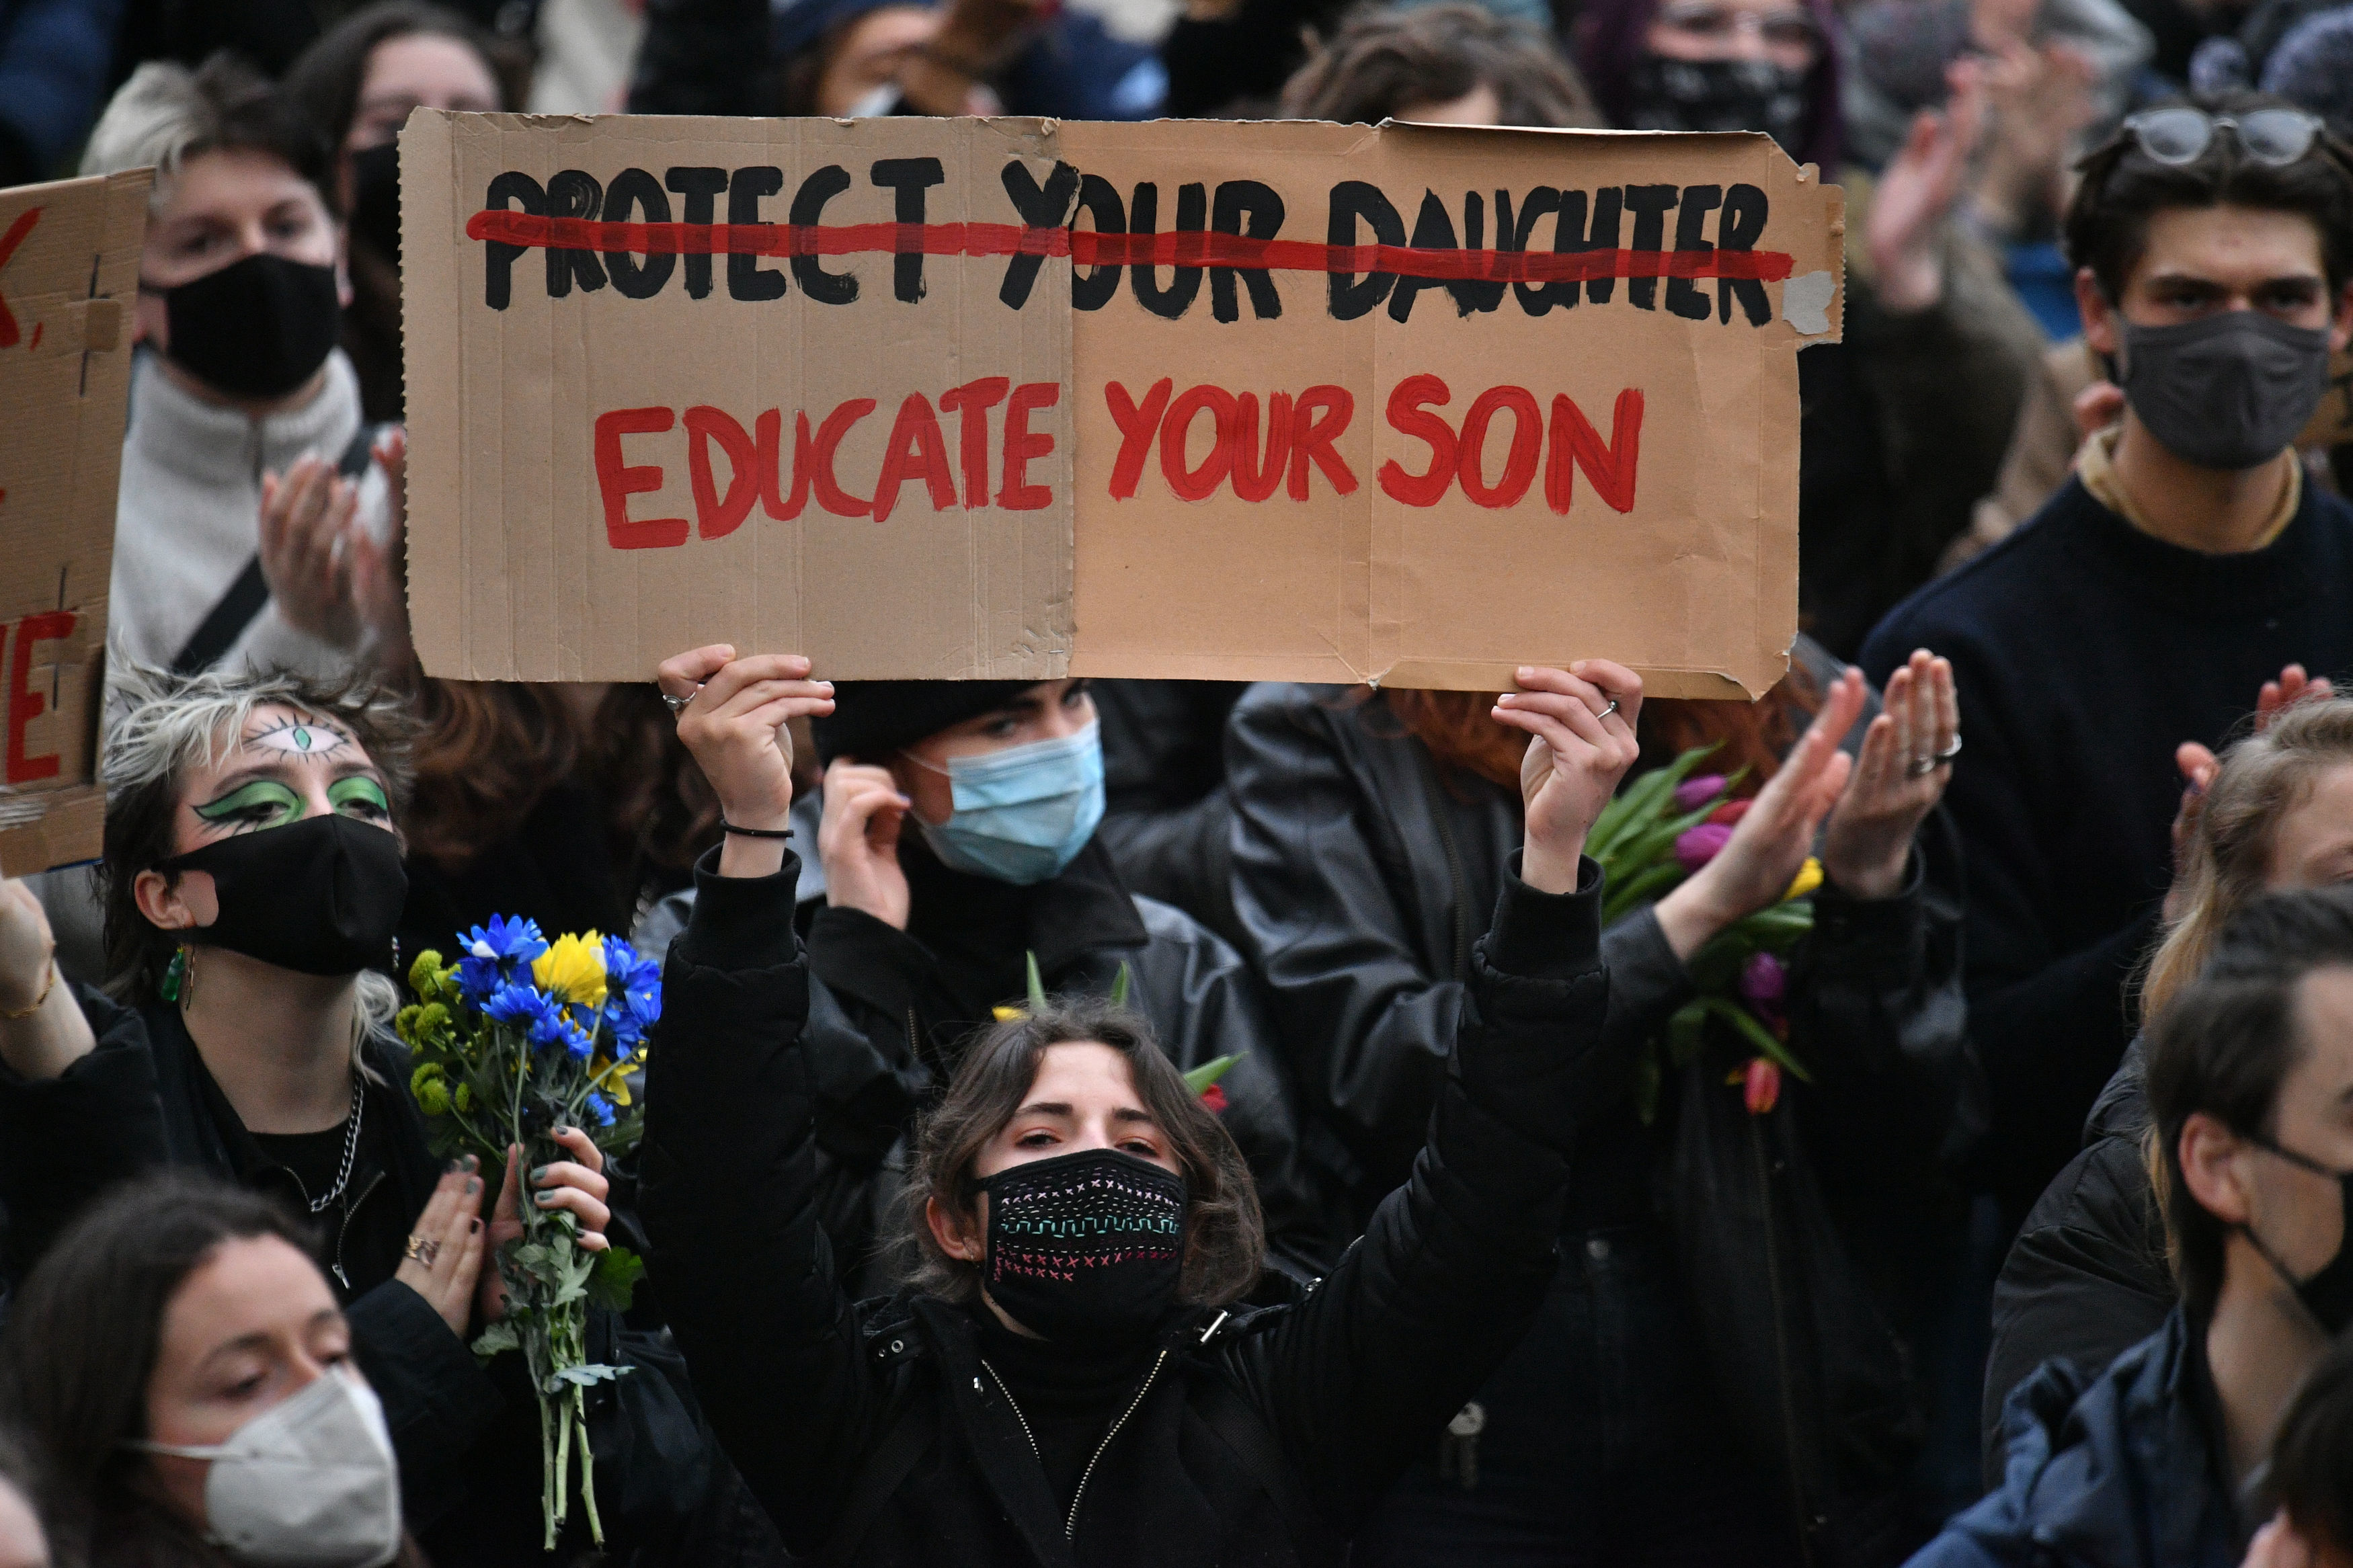 PROTECT YOUR DAUGHTER
EDUCATE YOUR SON